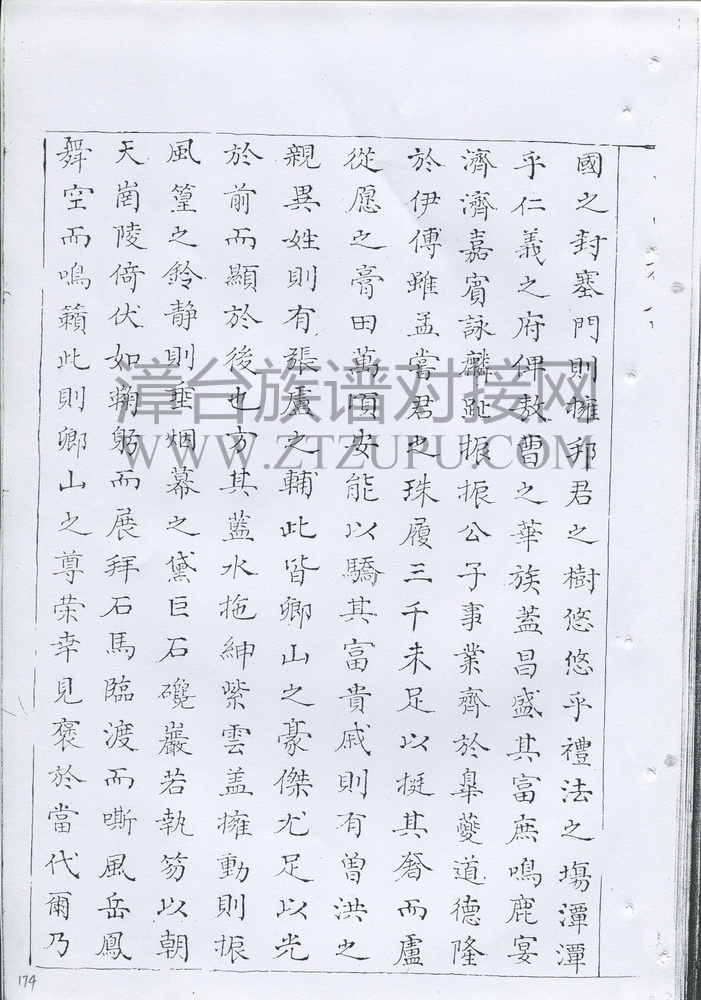 國之封塞門則擁邦君之樹悠悠乎禮法之塲潭潭
乎仁義之府俾敖曹之華族蓋昌盛其富庶鳴鹿宴
濟濟嘉賓詠麟趾振振公子事業齊於皋夔道德隆
於伊傅雖孟嘗君之珠履三千未足以挺其奢而盧
從愿之膏田萬頃安能以驕其富貴戚則有曾洪之
親異姓則有張盧之輔此皆鄉山之豪傑尤足以光
於前而顯於後也方其蓋水拖紳紫雲盖擁動則振
風篁之鈴静則垂烟幕之黛巨石巉巖若執笏以朝
天崗陵倚伏如鞠躬而展拜石馬臨渡而嘶風岳鳳
舞空而鳴籟此則鄉山之尊荣幸見褒於當代爾乃
174
漳台族谱对接网
WWW.ZTZUPU.COM